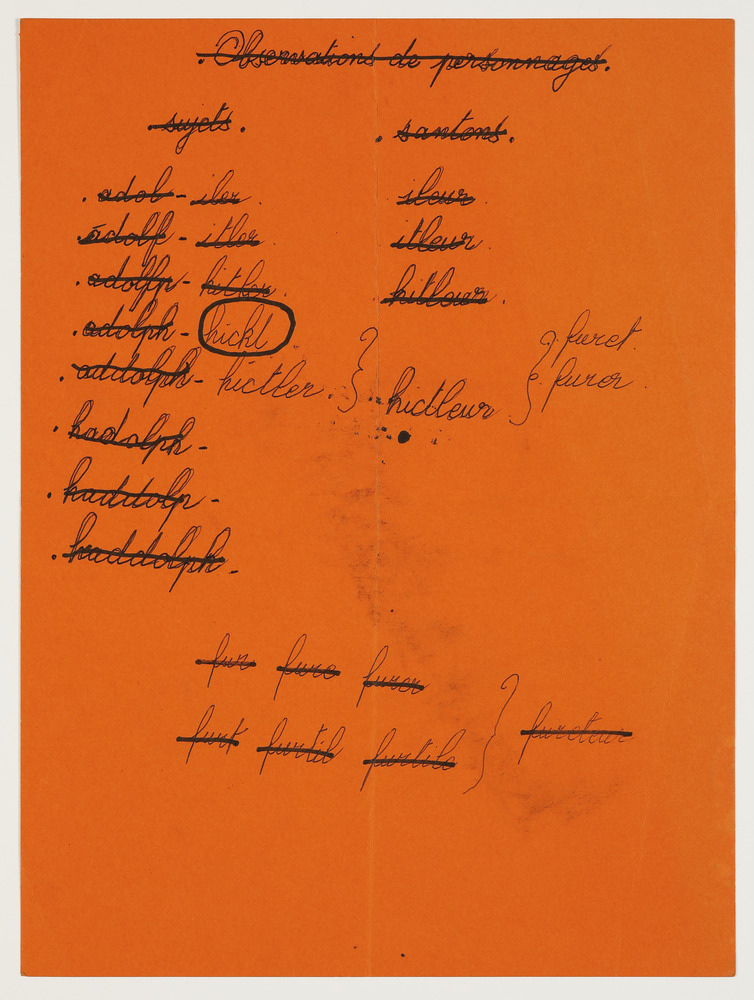 . Observations de personnages.
. sujets. . santons.
. adol - iler . ileur
. adolf - itler . itleur .
. adolfh - hitler . hitleur .
. adolph - hickl . } . furet .
. addolph - hictler . } . hictleur } . furor .
. hadolph -
. haddolp -
. haddolph -
fur furo furor
furt furtil furtilo } fureteur